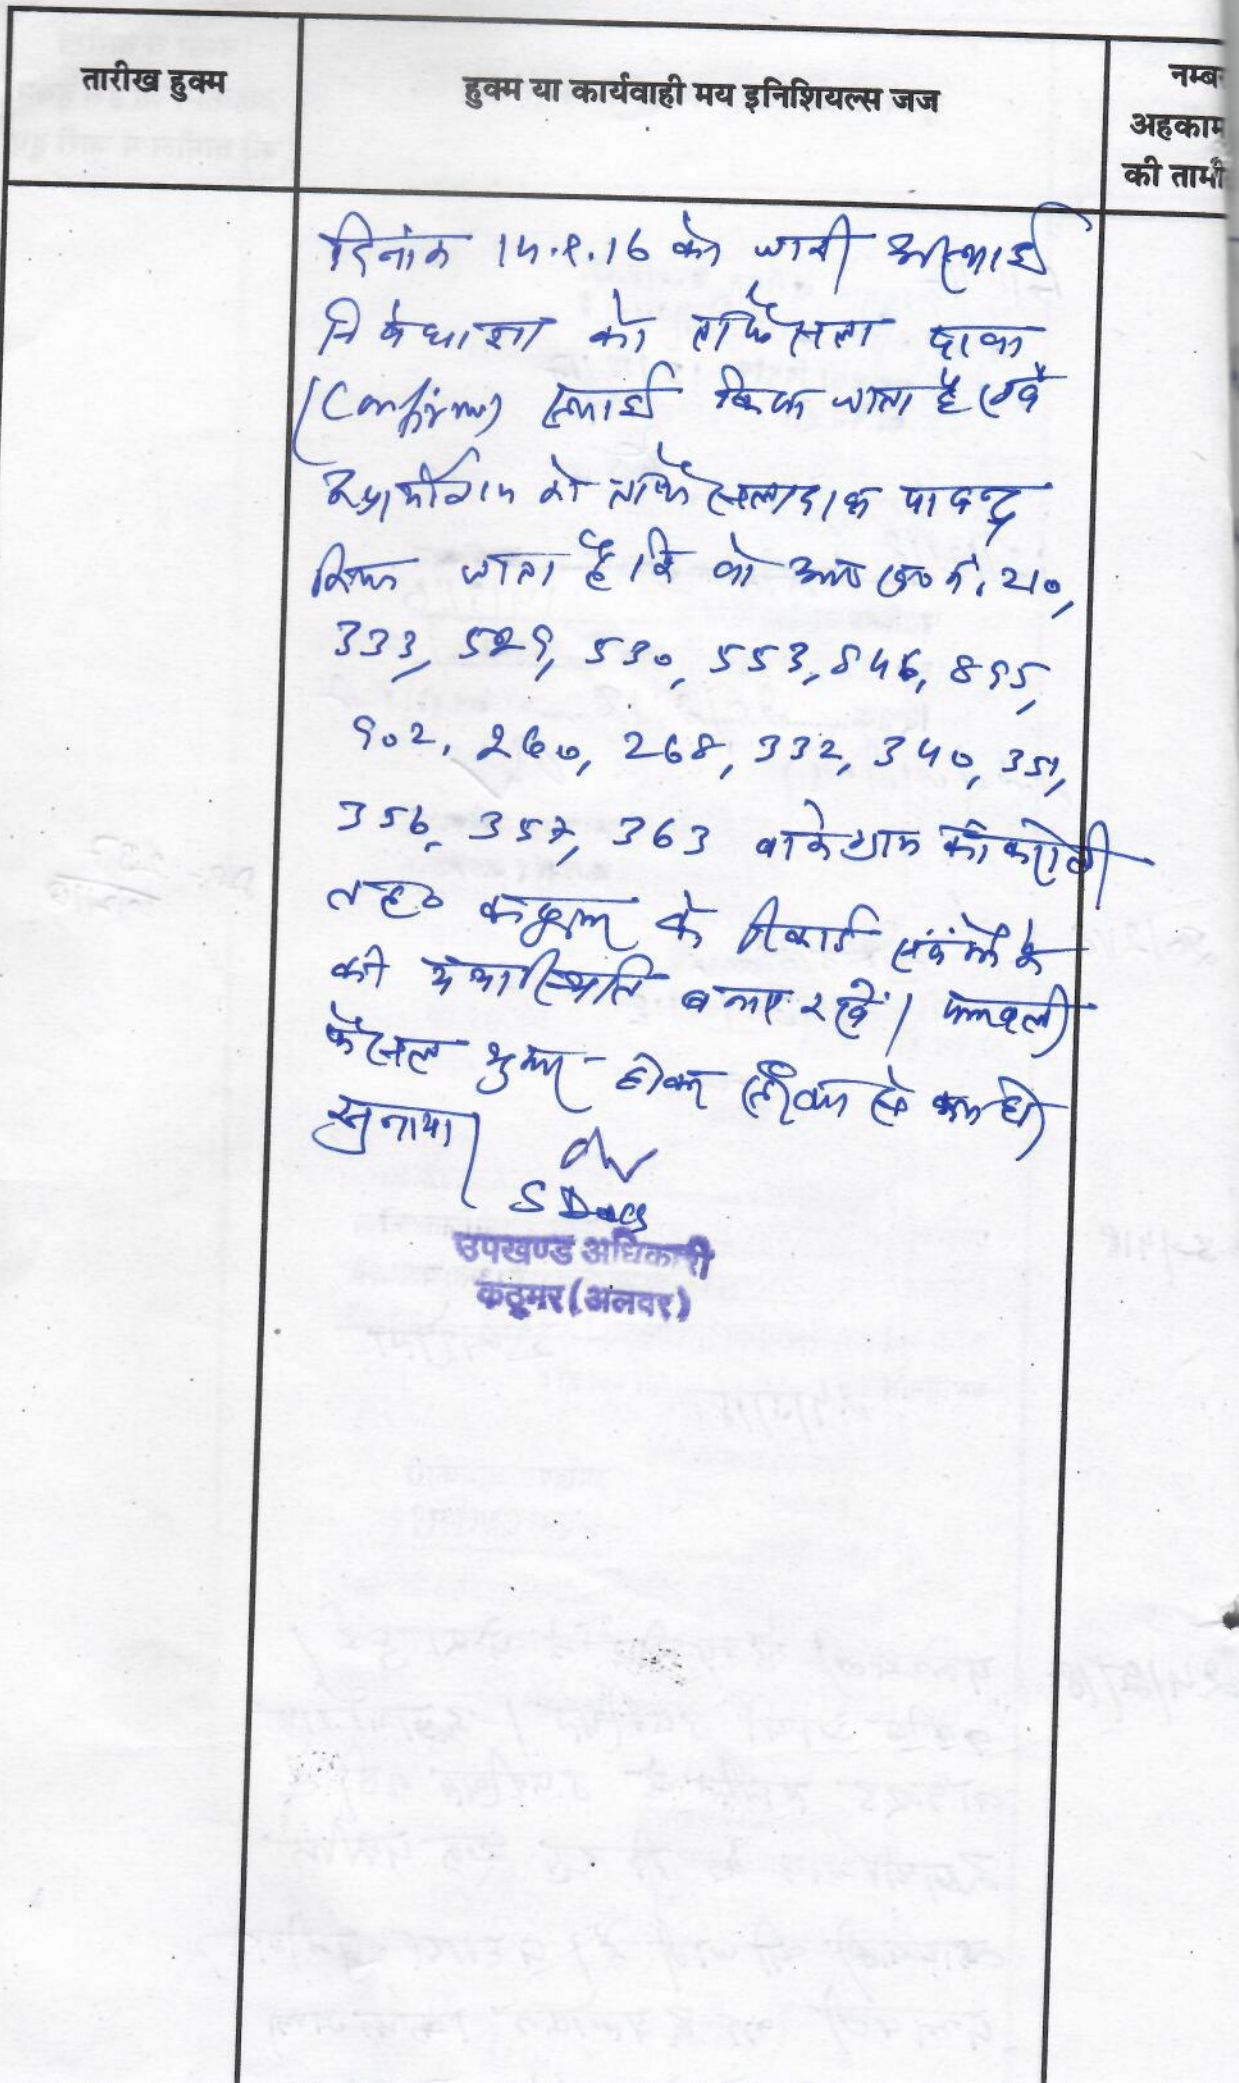 तारीख हुक्म
हुक्म या कार्यवाही मय इनिशियल्स जज
नम्बर
अहकाम
की तामी
दिनांक 14.9.16 को जारी अस्थाई
निषेधाज्ञा को ताफैसला दावा
(Confirm) स्थाई किया जाता है एवं
अप्रार्थीगण को ताफैसलादावा पाबन्द
किया जाता है कि वो आ० ख० नं. 210,
333, 529, 530, 553, 846, 895,
902, 260, 268, 332, 340, 351,
356, 357, 363 वाके ग्राम
तह० कठूमर के रिकार्ड
की यथास्थिति बनाए रखें। पत्रावली
फैसल शुमार होकर
सुनाया।
उपखण्ड अधिकारी
कठूमर (अलवर)